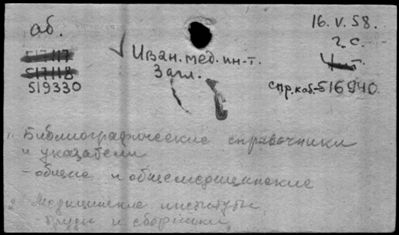 аб.
16.V.58.
2.с.
517117
517118
519330
Иван. мед. ин-т.
Загл.
Ч.з.
Спр. каб. 516940
1. Библиографические справочники
и указатели
- общие и общемедицинские
2. Медицинские институты,
труды и сборники